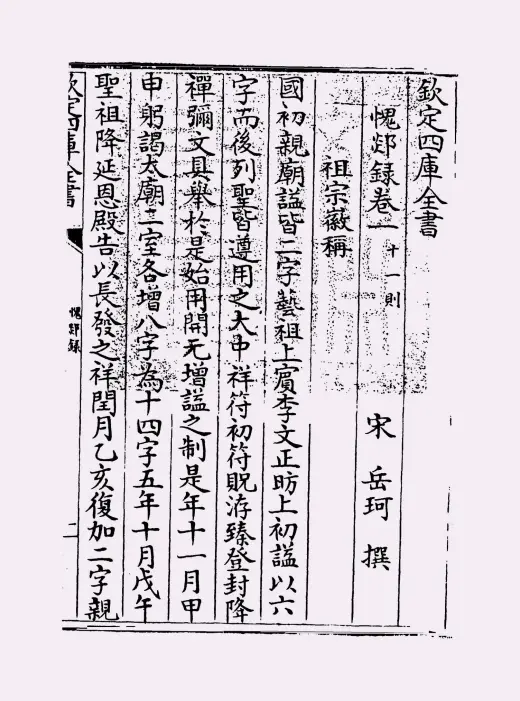 欽定四庫全書
愧郯録卷一 十一則
宋 岳珂 撰
祖宗徽稱
國初親廟諡皆二字藝祖上賓李文正昉上初諡以六
字而後列聖皆遵用之大中祥符初符貺洊臻登封降
禪彌文具舉於是始用開元增諡之制是年十一月甲
申躬謁太廟二室各增八字為十四字五年十月戊午
聖祖降延恩殿告以長發之祥閏月乙亥復加二字親
欽定四庫全書
愧郯録